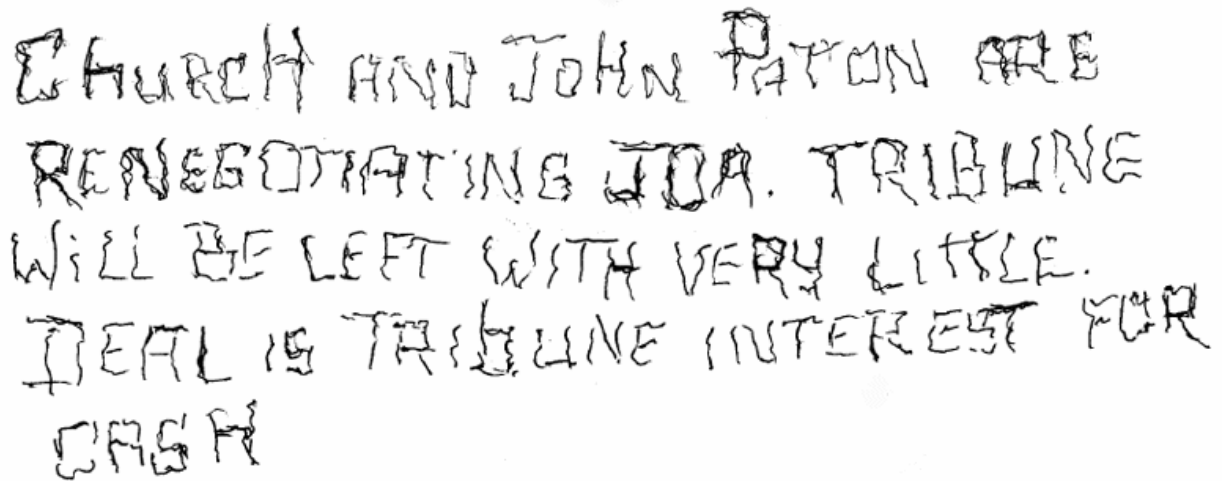 CHURCH AND JOHN PATON ARE
RENEGOTIATING JOA. TRIBUNE
WILL BE LEFT WITH VERY LITTLE.
DEAL IS TRIBUNE INTEREST FOR
CASH